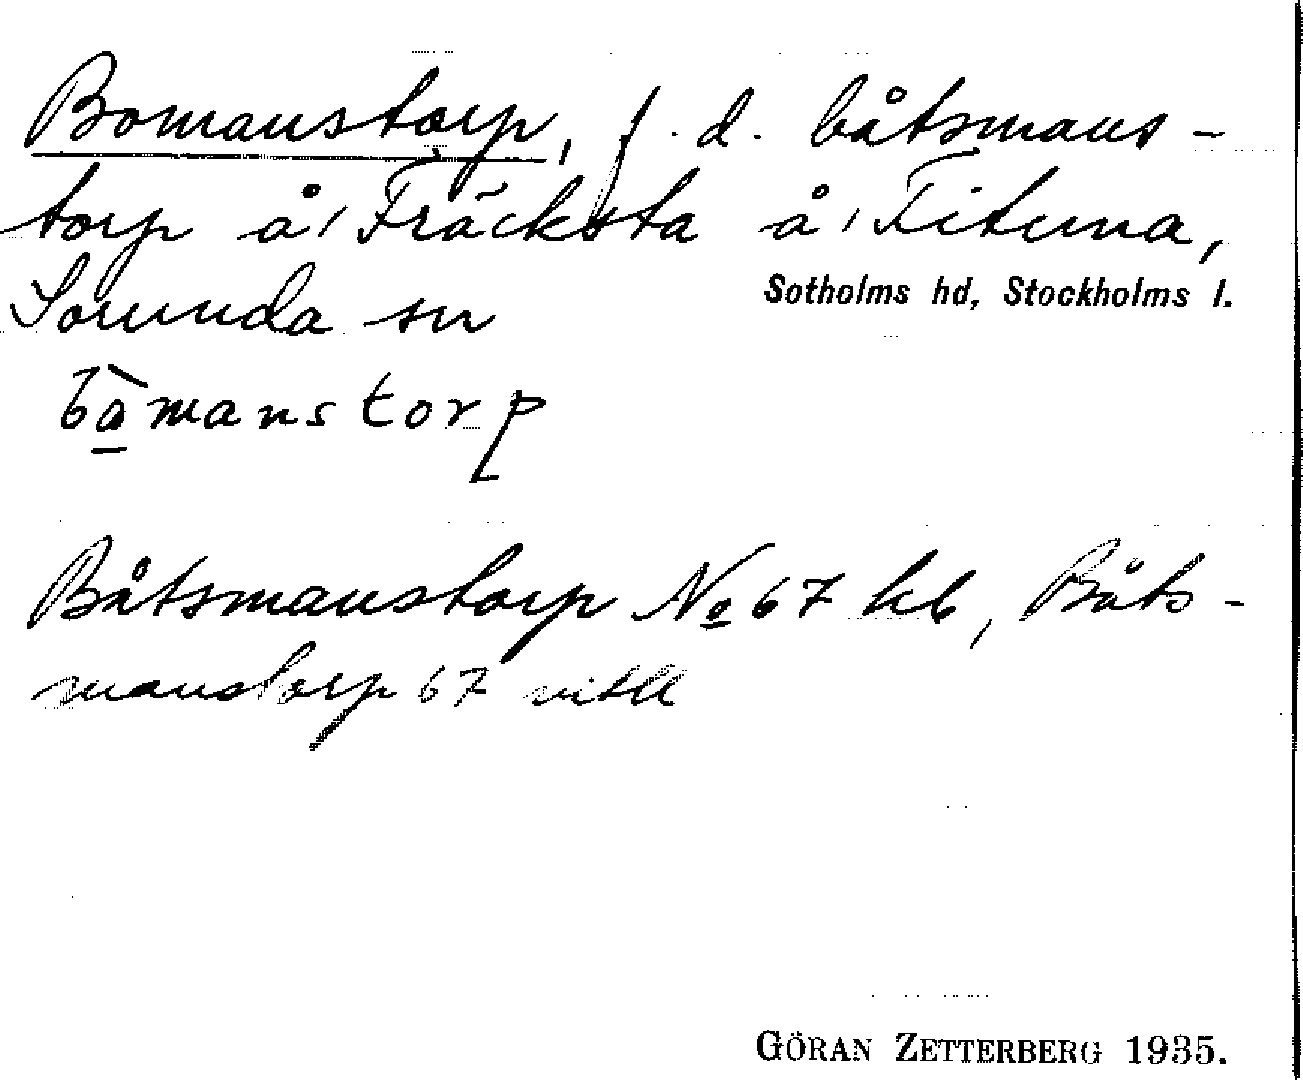 Bomanstorp, f. d. båtsmans-
torp å Fräcksta å, Fituna,
Sorunda sn
Sotholms hd, Stockholms l.
bå̀manstorp
Båtsmanstorp No 67 kb, Båts-
manstorp 67 vitll
GÖRAN ZETTERBERG 1935.